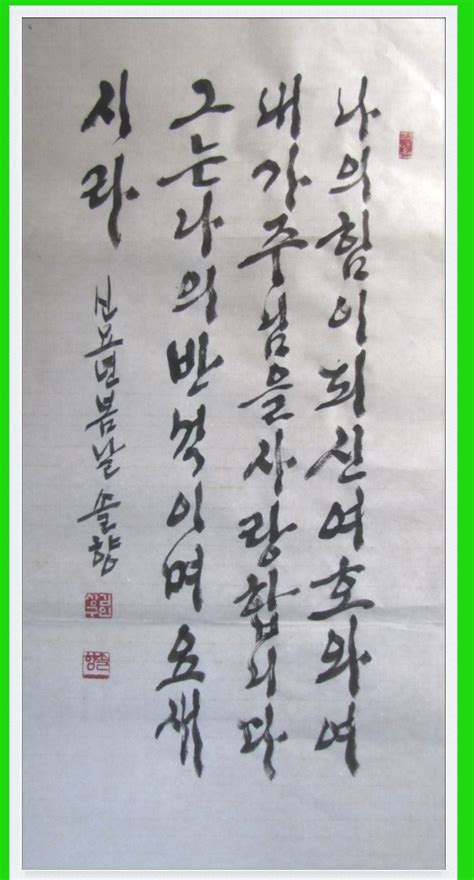 나의힘이되신여호와여
내가주님을사랑합니다
그는나의반석이며요새
시라
신묘년봄날솔향